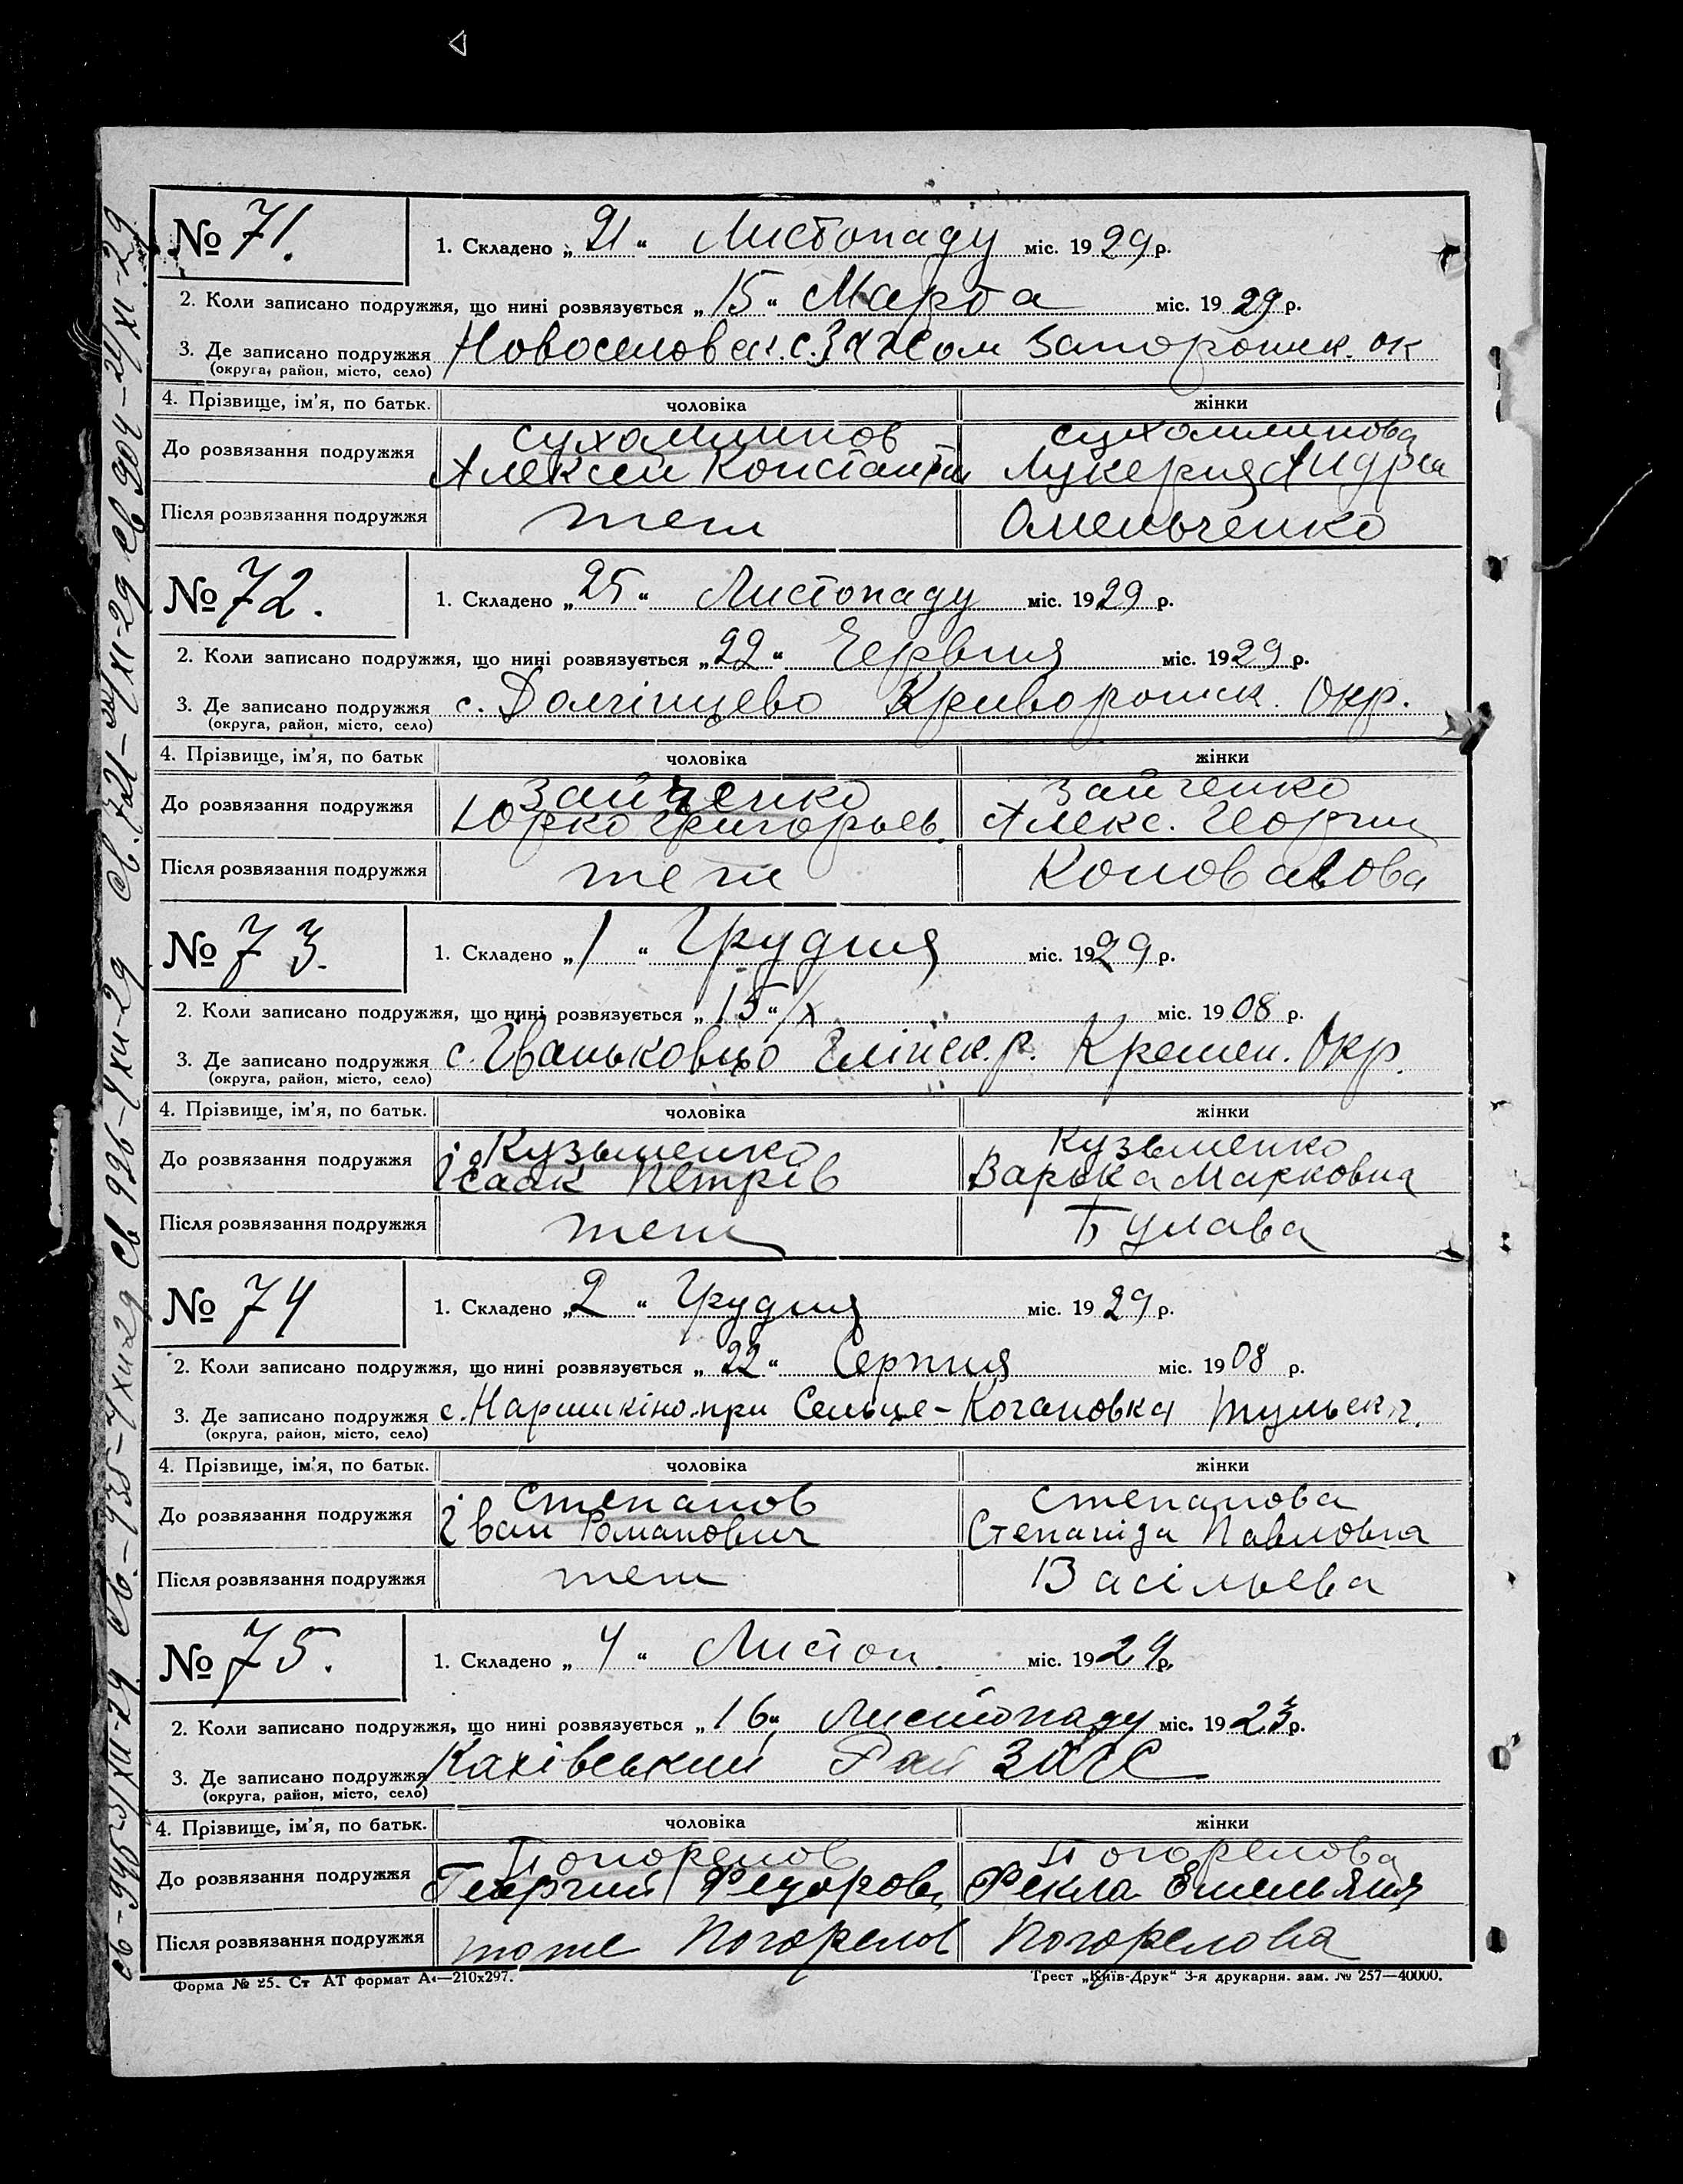 № 71. 1. Складено „21“ Листопаду міс. 1929 р.
2. Коли записано подружжя, що нині розвязується „15“ Марта міс. 1929 р.
3. Де записано подружжя Новоселовск. с. Запорожск. ок
(округа, район, місто, село)
4. Прізвище, ім’я, по батьк. чоловіка жінки
До розвязання подружжя Сухомлинов Сухомлинова
Алексей Константин Лукерия Андреа
Після розвязання подружжя теж Омельченко
№ 72. 1. Складено „25“ Листопаду міс. 1929 р.
2. Коли записано подружжя, що нині розвязується „22“ Червня міс. 1929 р.
3. Де записано подружжя с. Долгінцево Криворожск. Окр.
(округа, район, місто, село)
4. Прізвище, ім’я, по батьк чоловіка жінки
До розвязання подружжя Зайченко Зайченко
Юрко Григорьев. Алекс. Георги
Після розвязання подружжя теж Коновалова
№ 73. 1. Складено „1“ Грудня міс. 1929 р.
2. Коли записано подружжя, що нині розвязується „15“/X міс. 1908 р.
3. Де записано подружжя с. Глінск. р. Кремен. Окр.
(округа, район, місто, село)
4. Прізвище, ім’я, по батьк. чоловіка жінки
До розвязання подружжя Кузьменко Кузьменко
Ісаак Петрів Варька Марковна
Після розвязання подружжя теж Булава
№ 74 1. Складено „2“ Грудня міс. 1929 р.
2. Коли записано подружжя, що нині розвязується „22“ Серпня міс. 1908 р.
3. Де записано подружжя с. Наришкіно при Сельце-Когановка Тульск. г.
(округа, район, місто, село)
4. Прізвище, ім’я, по батьк. чоловіка жінки
До розвязання подружжя Степанов Степанова
Іван Романович Степаніда Павловна
Після розвязання подружжя теж Васільева
№ 75. 1. Складено „4“ Листоп. міс. 1929 р.
2. Коли записано подружжя, що нині розвязується „16“ Листопаду міс. 1923 р.
3. Де записано подружжя Кахівський Рай ЗАГС
(округа, район, місто, село)
4. Прізвище, ім’я, по батьк. чоловіка жінки
До розвязання подружжя Погорелов Погорелова
Георгий Федоров Фекла Емельян
Після розвязання подружжя тоже Погорелов Погорелова
Форма № 25. Ст АТ формат А4—210х297. Трест „Київ-Друк“ 3-я друкарня. зам. № 257—40000.